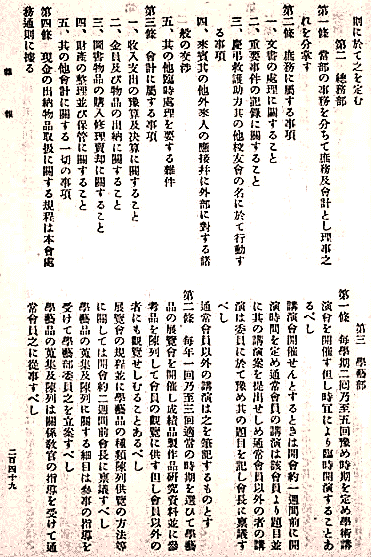 則に於て之を定む
第二　總務部
第一條　當部の事務を分ちて庶務及會計とし理事之
れを分掌す
第二條　庶務に屬する事項
一、文書の處理に關すること
二、重要事件の記錄に關すること
三、慶弔救護助力其の他校友會の名に於て行動す
る事項
四、來賓其の他外來人の應接幷に外部に對する諸
般の交渉
五、其の他臨時處理を要する雜件
第三條　會計に屬する事項
一、收入支出の豫算及決算に關すること
二、金員及び物品の出納に關すること
三、圖書物品の購入修理賣却に關すること
四、財產の整理並び保管に關すること
五、其の他會計に關する一切の事項
第四條　現金の出納物品取扱に關する規程は本會處
務通則に據る
雜報
第三　學藝部
第一條　每學期二回乃至五回豫め時期を定め學術講
演會を開催す但し時宜により臨時開演することあ
るべし
講演會開催せんとするときは開會約一週間前に開
演時間を定め通常會員の講演は該會員より題目並
に其の講演案を提出せしめ通常會員以外の者の講
演は委員に於て豫め其の題目を記し會長に稟議す
べし
通常會員以外の講演は之を筆記するものとす
第二條　每年一回乃至三回適當の時期を選びて學藝
品の展覽會を開催し成績品製作品研究資料並に參
考品を陳列して會員の觀覽に供す但し會員以外の
者にも觀覽せしむることあるべし
展覽會の規程並に學藝品の種類陳列供覽の方法等
に關しては開會約二週間前會長に稟議すべし
學藝品の蒐集及陳列に關する細目は參事の指導を
受けて學藝部委員之を立案すべし
學藝品の蒐集及陳列は關係敎官の指導を受けて通
常會員之に從事すべし
二百四十九